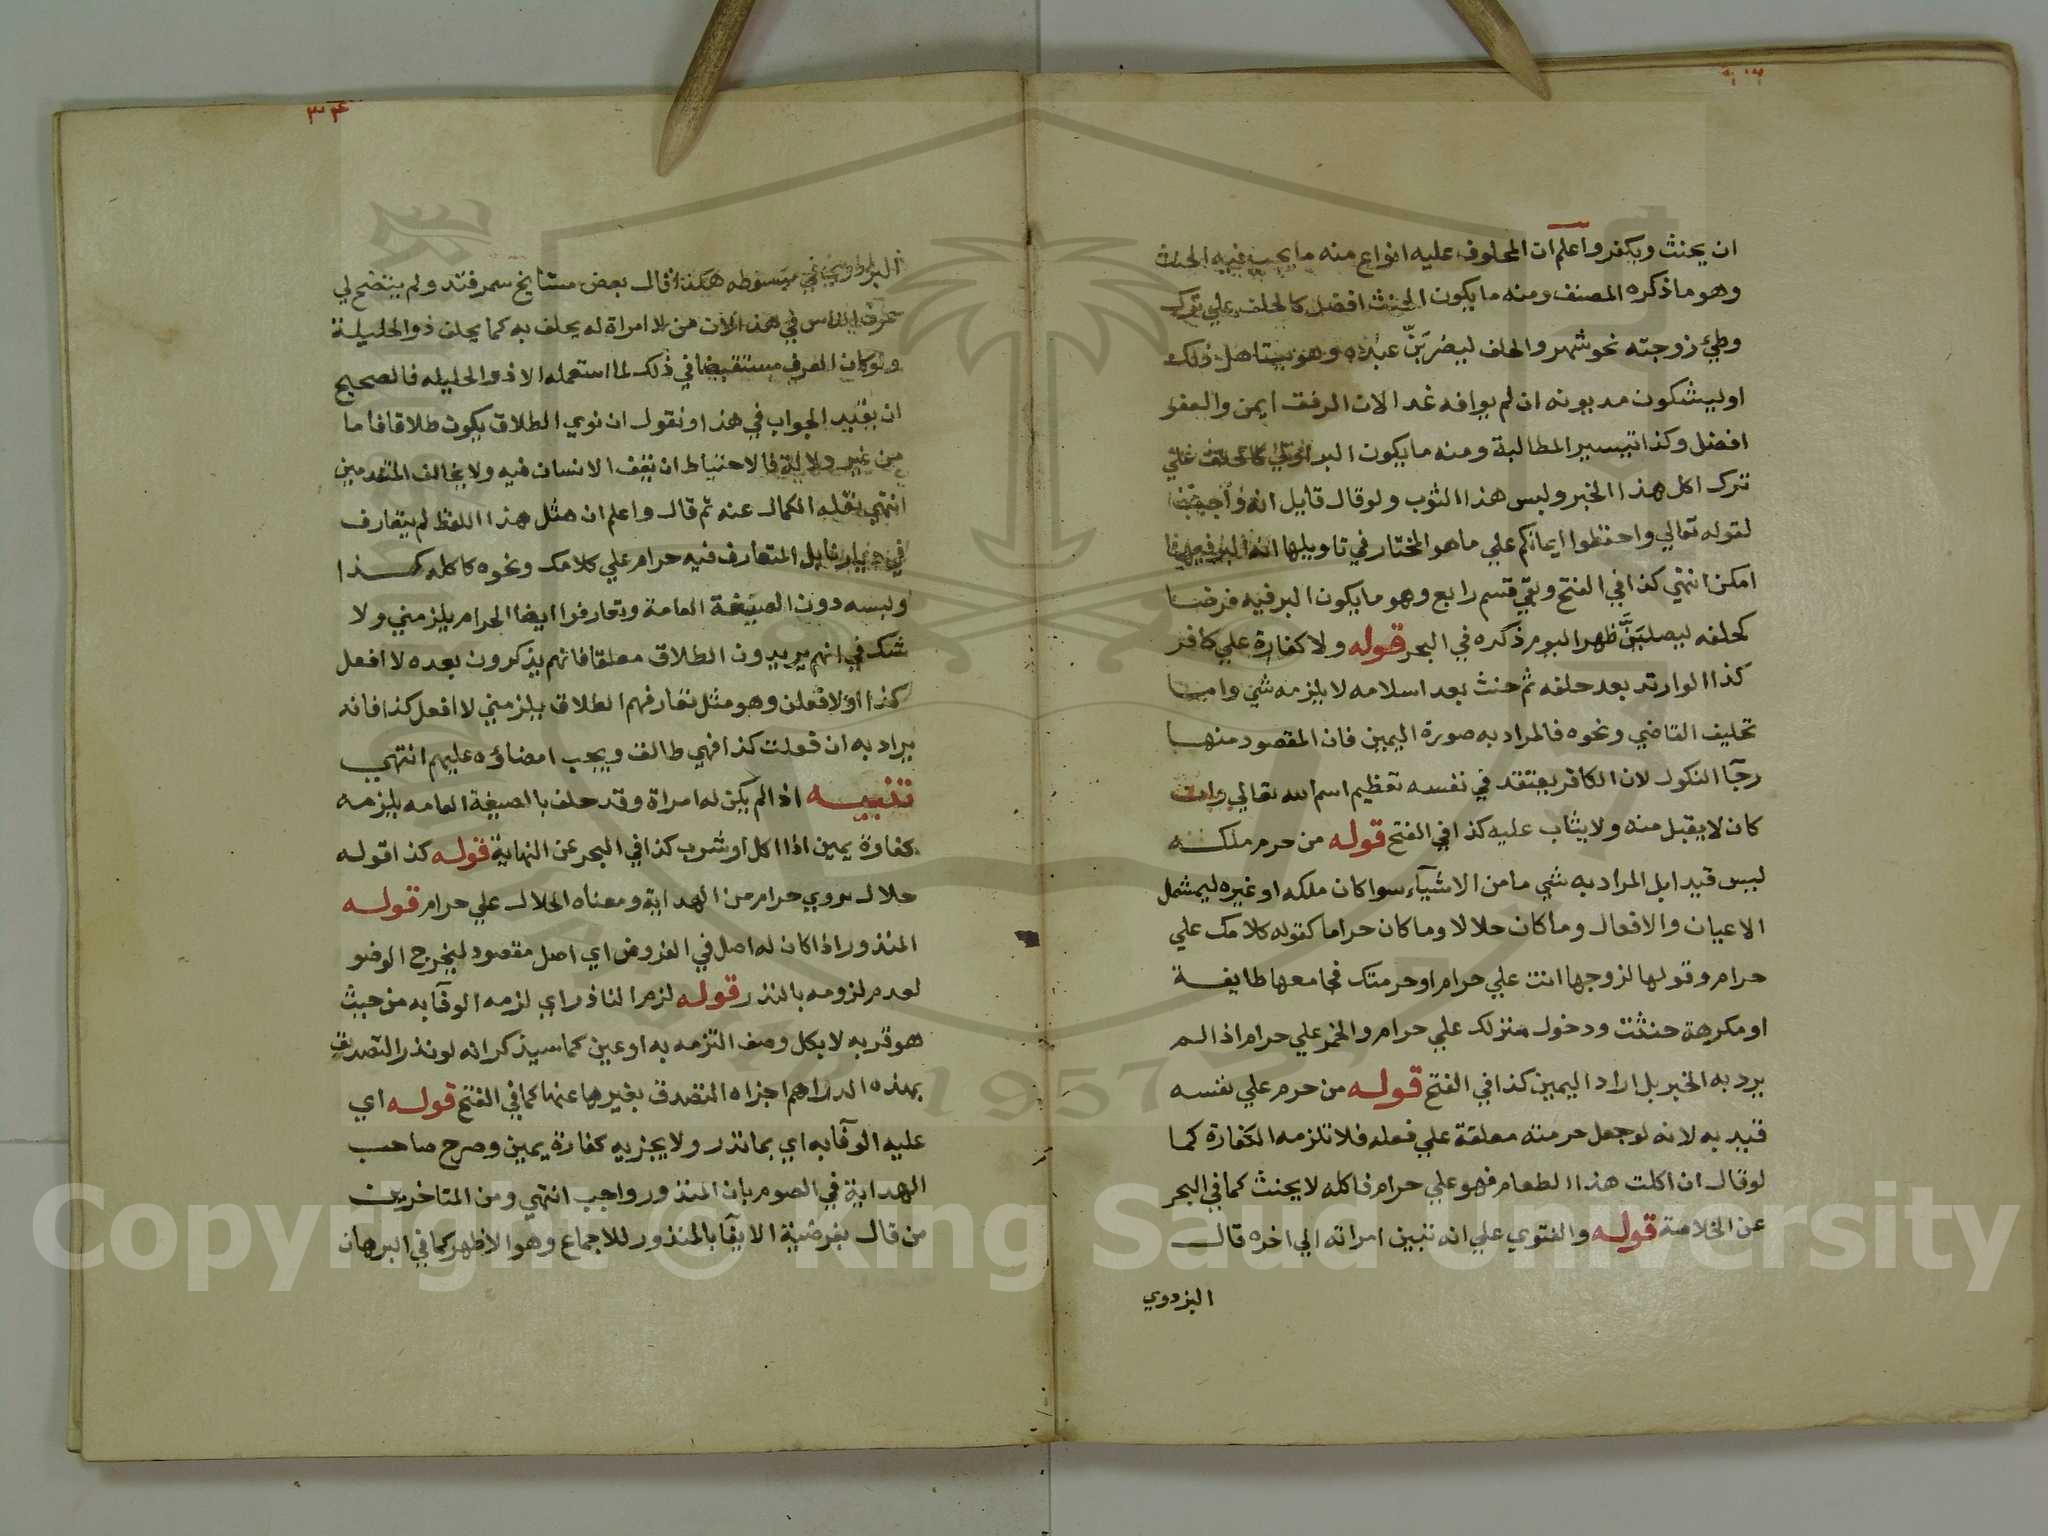 ان يحنث ويكفر واعلم ان المحلوف عليه انواع منه ما يجب فيه الحنث
وهو ما ذكره المصنف ومنه ما يكون الحنث افضل كالحلف علي ترك
وطئ زوجته نحو شهر والحلف ليضربنّ عبده وهو يستاهل ذلك
او ليشكون مديونه ان لم يوافه غدا لان الرفق ايمن والعفو
افضل وكذا تيسير المطالبة ومنه ما يكون البر اولي كالحلف علي
ترك اكل هذا الخبز ولبس هذا الثوب ولو قال قايل انه واجب
لقوله تعالي واحفظوا ايمانكم علي ما هو المختار في تاويلها انه البر فيها
امكن انتهي كذا في الفتح وبقي قسم رابع وهو ما يكون البر فيه فرضا
كحلفه ليصلينّ ظهر اليوم ذكره في البحر قوله ولا كفارة علي كافر
كذا لو ارتد بعد حلفه ثم حنث بعد اسلامه لا يلزمه شي واما
تحليف القاضي ونحوه فالمراد به صورة اليمين فان المقصود منها
رجآ النكول لان الكافر يعتقد في نفسه تعظيم اسم الله تعالي وان
كان لا يقبل منه ولا يثاب عليه كذا في الفتح قوله من حرم ملكه
ليس قيدا بل المراد به شي ما من الاشيآء سوا كان ملكه او غيره ليشمل
الاعيان والافعال وما كان حلالا وما كان حراما كقوله كلامك علي
حرام وقولها لزوجها انت علي حرام او حرمتك فجامعها طايعة
او مكرهة حنثت ودخول منزلك علي حرام والخمر علي حرام اذا لم
يرد به الخبر بل اراد اليمين كذا في الفتح قوله من حرم علي نفسه
قيد به لانه لو جعل حرمته معلقة علي فعله فلا تلزمه الكفارة كما
لو قال ان اكلت هذا الطعام فهو علي حرام فاكله لا يحنث كما في البحر
عن الخلاصة قوله والفتوي علي انه تبين امراته الي اخره قال
البزدوي
٣٤
في مبسوطه هكذا قال بعض مشايخ سمرقند ولم يتضح لي
عرف الناس في هذا لان من لا امراة له يحلف به كما يحلف ذو الحليلة
ولو كان العرف مستفيضا في ذلك لما استعمله الا ذو الحليله فالصحيح
ان يقيد الجواب في هذا ونقول ان نوي الطلاق يكون طلاقا فاما
من غير دلالة فالاحتياط ان يقف الانسان فيه ولا يخالف المتقدمين
انتهي نقله الكمال عنه ثم قال واعلم ان مثل هذا اللفظ لم يتعارف
في ديارنا بل المتعارف فيه حرام علي كلامك ونحوه كاكله كذا
ولبسه دون الصيغة العامة وتعارفوا ايضا الحرام يلزمني ولا
شك في انهم يريدون الطلاق معلقا فانهم يذكرون بعده لا افعل
كذا او لافعلن وهو مثل تعارفهم الطلاق يلزمني لا افعل كذا فانه
يراد به ان فعلت كذا فهي طالق ويجب امضاؤه عليهم انتهي
تنبيه اذا لم يكن له امراة وقد حلف بالصيغة العامه يلزمه
كفارة يمين اذا اكل او شرب كذا في البحر عن النهاية قوله كذا قوله
حلال بروي حرام من الهداية ومعناه الحلال علي حرام قوله
المنذور اذا كان له اصل في الفروض اي اصل مقصود ليخرج الوضو
لعدم لزومه بالنذر قوله لزم الناذر اي لزمه الوفآ به من حيث
هو قربه لا بكل وصف التزمه به او عين كما سيذكر انه لو نذر التصدق
بهذه الدراهم اجزاه التصدق بغيرها عنها كما في الفتح قوله اي
عليه الوفآ به اي بما نذر ولا يجزيه كفارة يمين وصرح صاحب
الهداية في الصوم بان المنذور واجب انتهي ومن المتاخرين
من قال بفرضية الايفآ بالمنذور للاجماع وهو الاظهر كما في البرهان
1957
Copyright © King Saud University